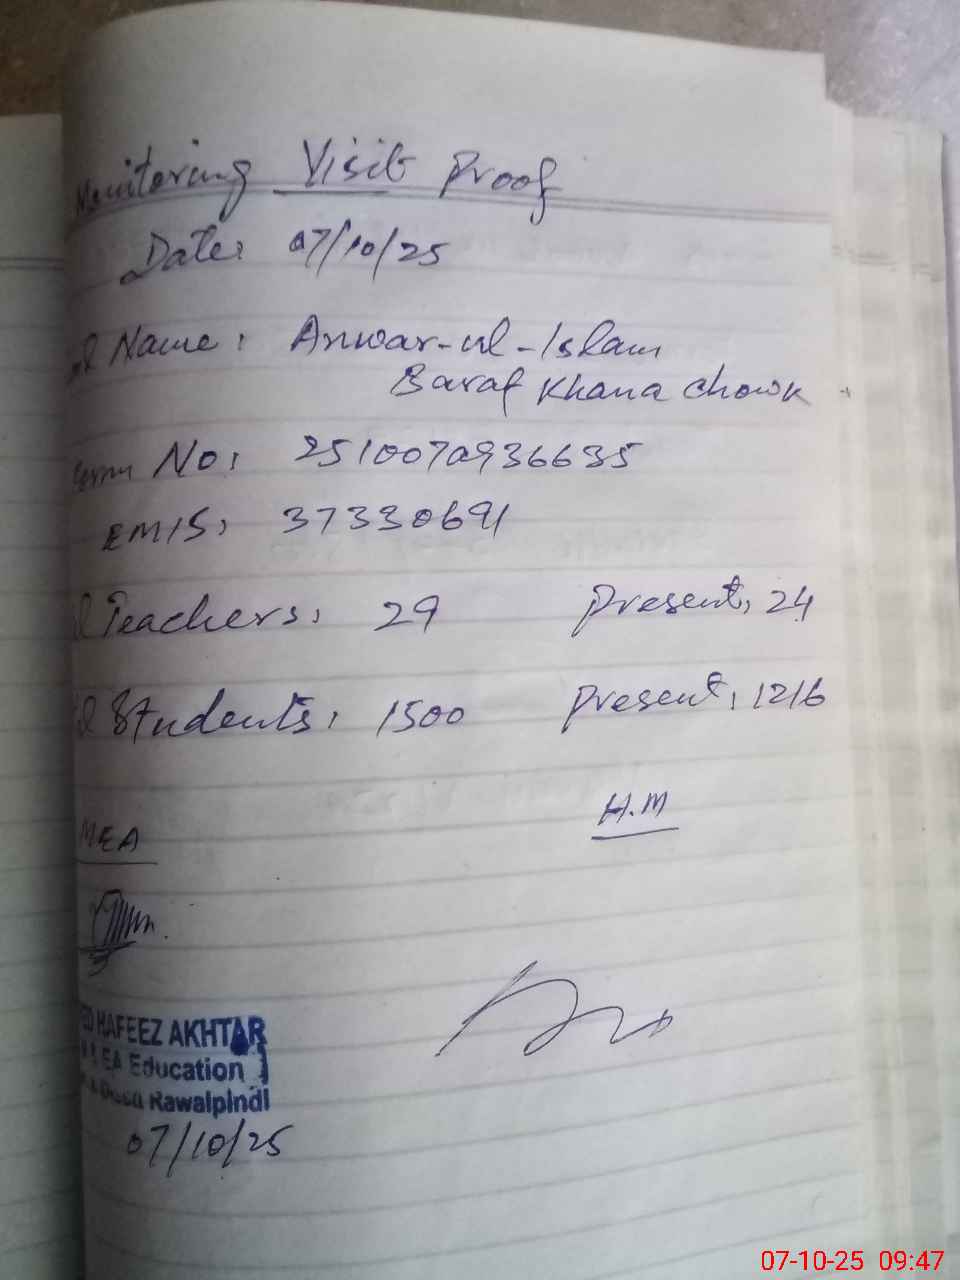 Monitoring Visit Proof
Date: 07/10/25
Name: Anwar-ul-Islam
Baraf Khana Chowk
No: 2510070936635
EMIS: 37330691
Teachers: 29 Present: 24
Students: 1500 Present: 1216
MEA H.M
HAFEEZ AKHTAR
EA Education
Rawalpindi
07/10/25
07-10-25 09:47